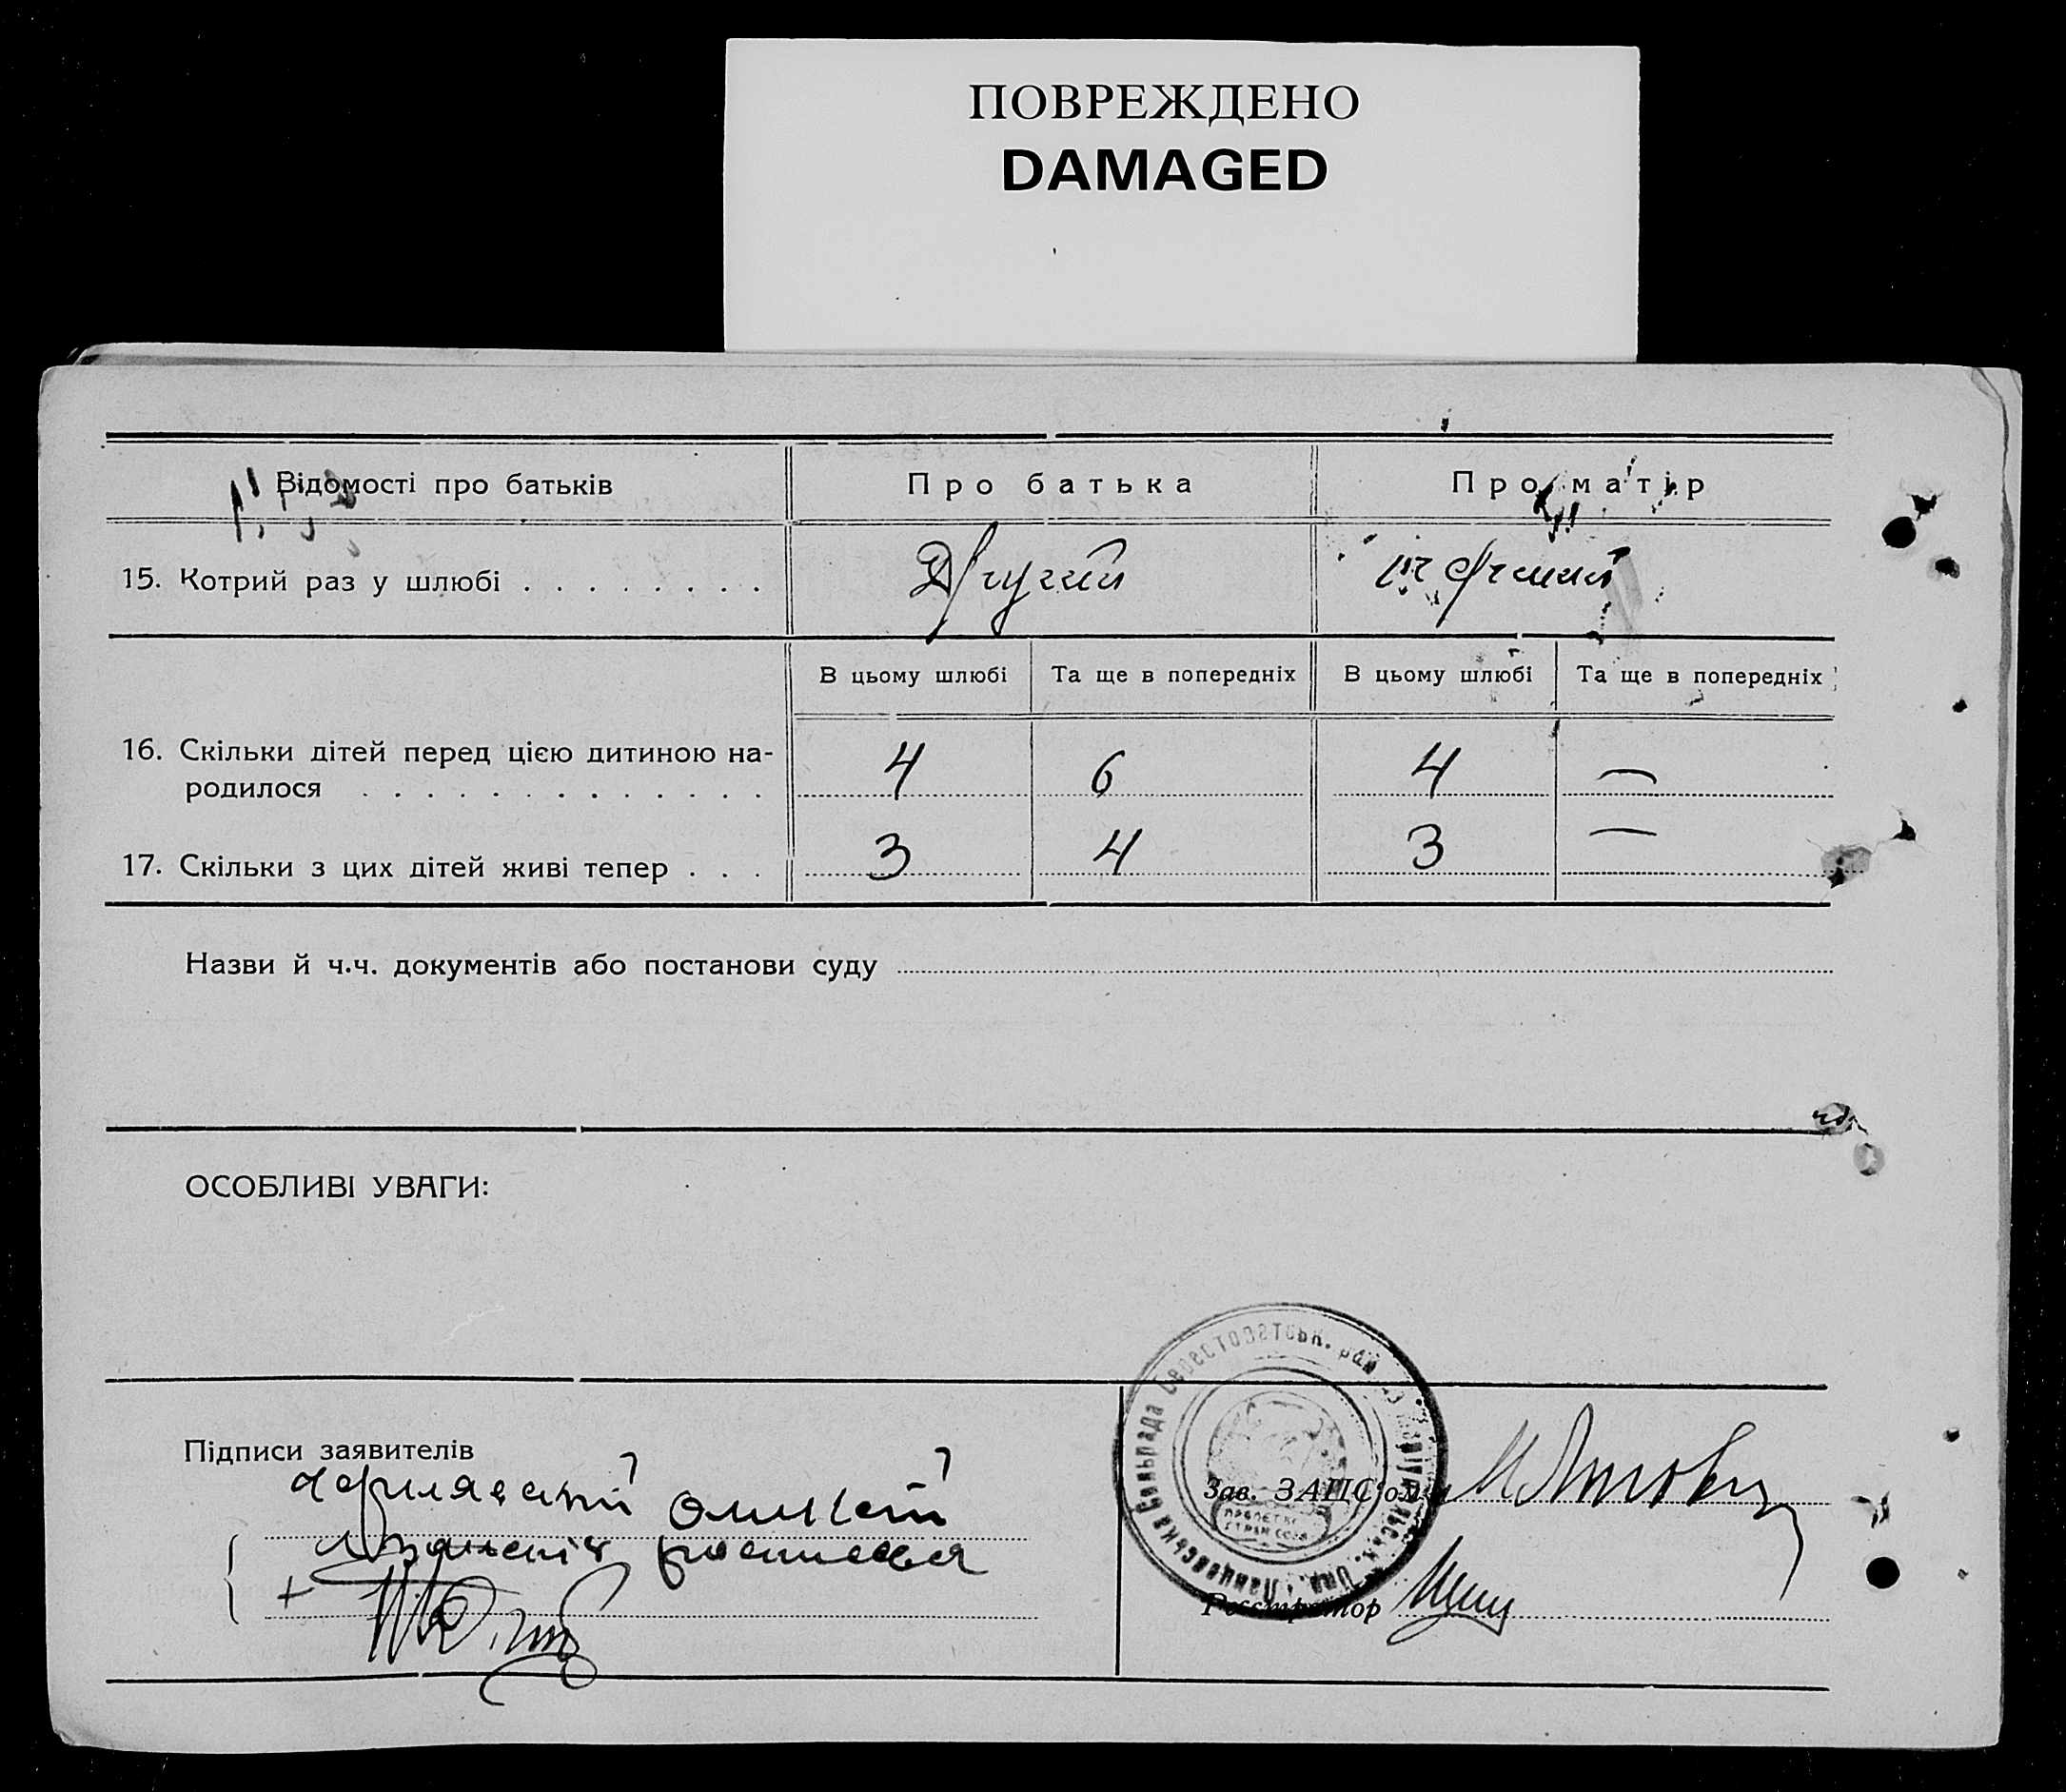 ПОВРЕЖДЕНО
DAMAGED
Відомості про батьків
Про батька
Про матір
15. Котрий раз у шлюбі . . . . . . . .
Другий
первий
В цьому шлюбі
Та ще в попередніх
В цьому шлюбі
Та ще в попередніх
16. Скільки дітей перед цією дитиною на-
родилося . . . . . . . . . . . . .
4
6
4
—
17. Скільки з цих дітей живі тепер . . .
3
4
3
—
Назви й ч.ч. документів або постанови суду
ОСОБЛИВІ УВАГИ:
Підписи заявителів
Зав. ЗАПС'ом
Реєстратор
Сільрада